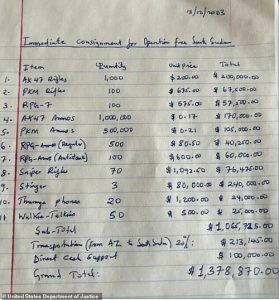 13/12/2023
Immediate Consignment for Operation free South Sudan
Item Quantity Unit price Total
1- AK47 Rifles 1,000 $200.00 $200,000.00
2. PKM Rifles 100 $675.00 $67,500.00
3. RPG-7 100 $575.00 $57,500.00
4. AK47 Ammos 1,000,000 $0.17 $170,000.00
5. PKM Ammos 500,000 $0.21 $105,000.00
6. RPG-Ammo (Regular) 500 $80.50 $40,250.00
7. RPG-Ammo (Antitank) 100 $600.00 $60,000.00
8 Sniper Rifles 70 $1,092.50 $76,475.00
9 Stinger 3 $80,000.00 $240,000.00
10 Thuraya phones 20 $1,200.00 $24,000.00
11 Walkie-Talkies 50 $500.00 $25,000.00
Sub-Total $1,065,725.00
Transportation (from AZ to South Sudan) 20% $213,145.00
Direct Cash Support $100,000.00
Grand Total: $1,378,870.00
© United States Department of Justice